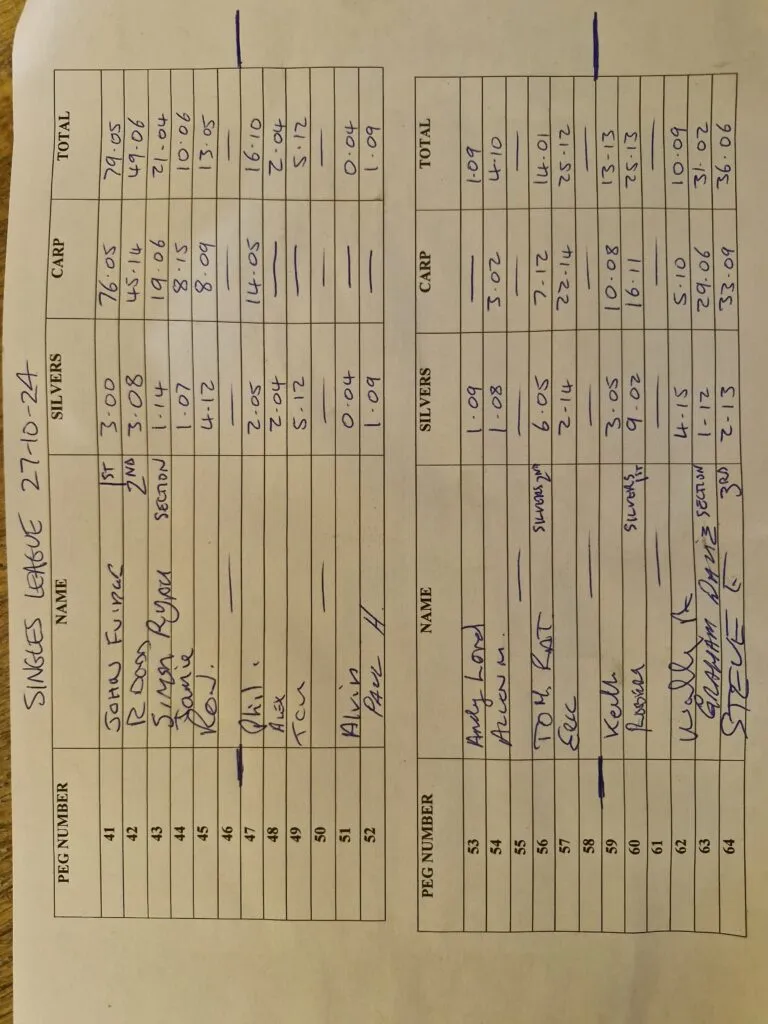 SINGLES LEAGUE 27-10-24
PEG NUMBER NAME SILVERS CARP TOTAL
41 JOHN 1ST 3.00 76.05 79.05
42 R DODD 2ND 3.08 45.14 49.06
43 SECTION 1.14 19.06 21.04
44 Jamie 1.07 8.15 10.06
45 4.12 8.09 13.05
46 — — — —
47 Phil. 2.05 14.05 16.10
48 Alex 2.04 — 2.04
49 5.12 — 5.12
50 — — — —
51 Alvin 0.04 — 0.04
52 PAUL H 1.09 — 1.09
PEG NUMBER NAME SILVERS CARP TOTAL
53 Andy Lord 1.09 — 1.09
54 M. 1.08 3.02 4.10
55 — — — —
56 TOM. SILVERS 2ND 6.05 7.12 14.01
57 Eric 2.14 22.14 25.12
58 — — — —
59 Keith 3.05 10.08 13-13
60 SILVERS 1ST 9.02 16.11 25.13
61 — — — —
62 4.15 5.10 10.09
63 GRAHAM SECTION 1-12 29.06 31.02
64 STEVE E 3RD 2-13 33.09 36.06